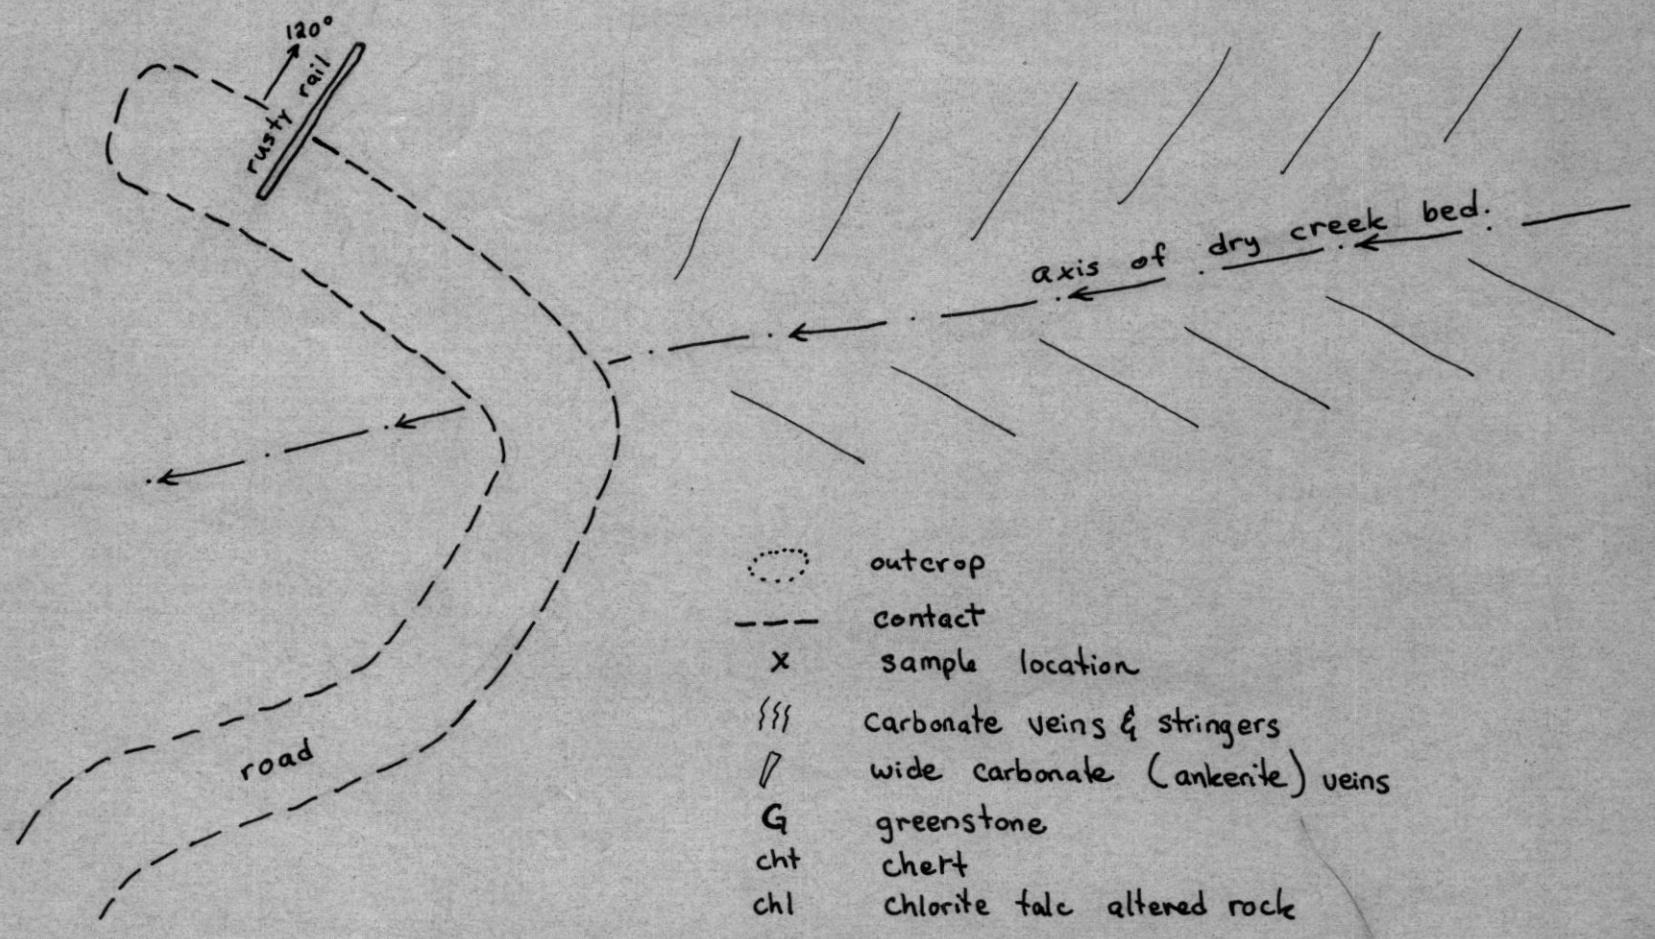 120°
rusty rail
axis of dry creek bed.
road
outcrop
contact
x sample location
carbonate veins & stringers
wide carbonate (ankerite) veins
G greenstone
cht chert
chl chlorite talc altered rock